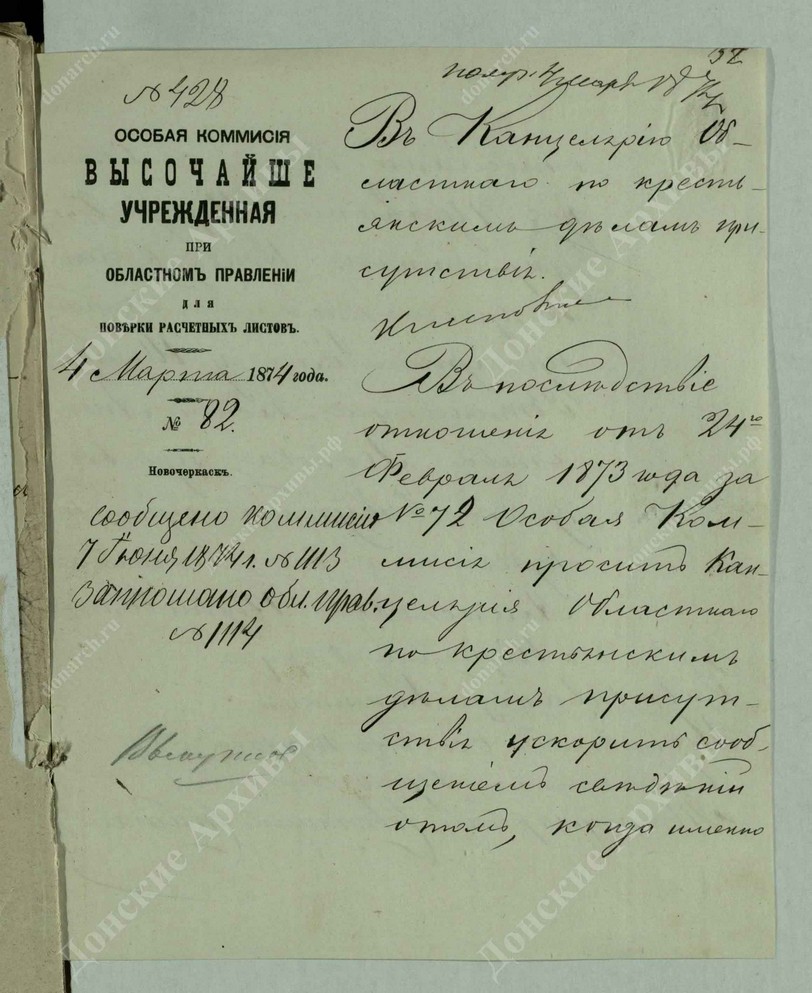 32
№ 428
ОСОБАЯ КОММИСІЯ
ВЫСОЧАЙШЕ
УЧРЕЖДЕННАЯ
ПРИ
ОБЛАСТНОМЪ ПРАВЛЕНІИ
ДЛЯ
ПОВѢРКИ РАСЧЕТНЫХЪ ЛИСТОВЪ.
4 Марта 1874 года.
№ 82.
Новочеркаскъ.
сообщено коммисіи
7 Іюня 1874 г. № 1113
Запрошено обл. прав.
№ 1114
получ. 4 марта
Въ Канцелярію Об-
ластнаго по кресть-
янскимъ дѣламъ при-
сутствія.
Въ послѣдствіе
отношенія отъ 24го
Февраля 1873 года за
№ 72 Особая Ком-
мисія проситъ Кан-
целярія Областнаго
по крестьянскимъ
дѣламъ присут-
ствія ускорить сооб-
щеніемъ свѣдѣній
о томъ, когда именно
Донские Архивы
donarch.ru
архивы.рф